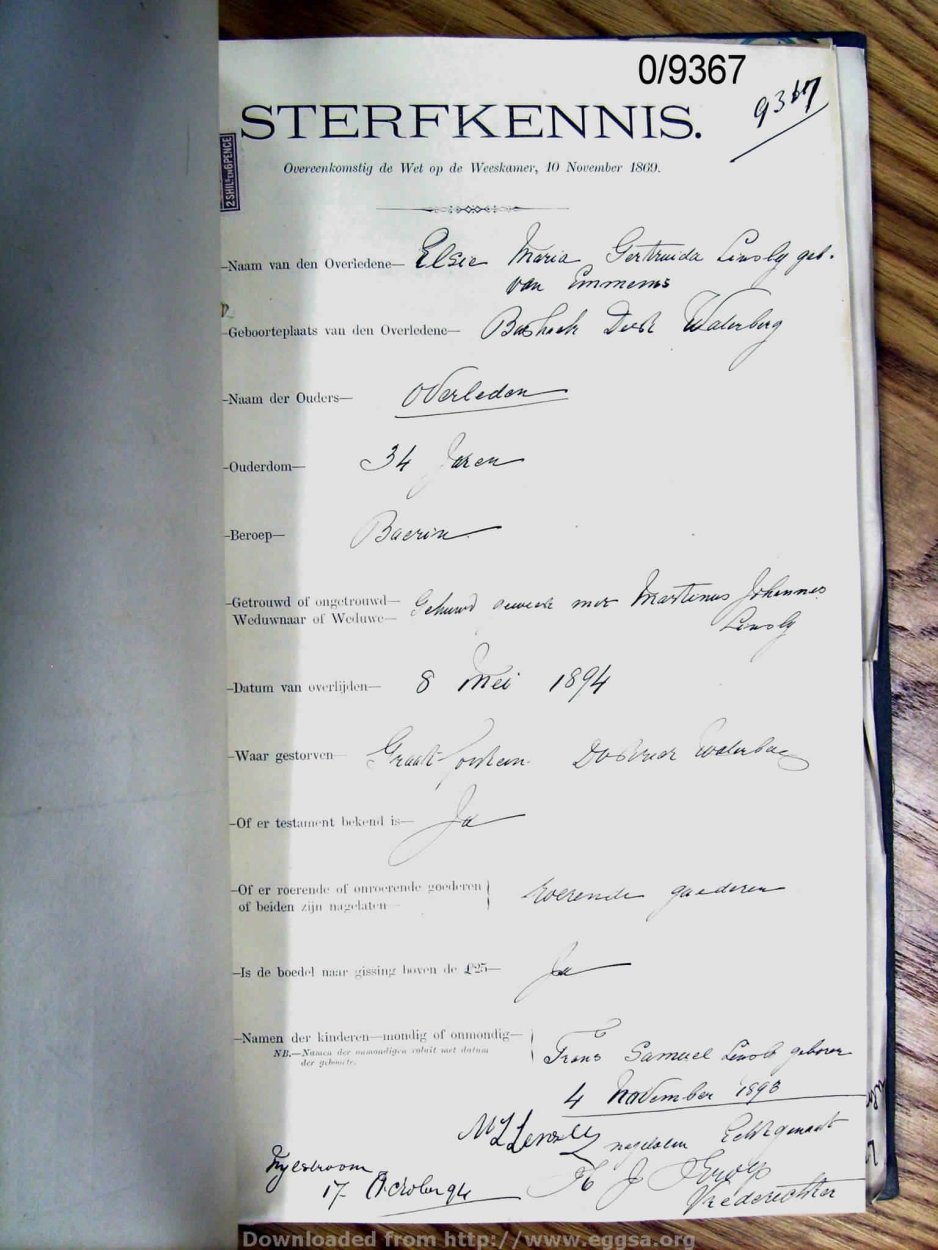 0/9367
9367
STERFKENNIS.
2 SHIL. EN 6 PENCE
Overeenkomstig de Wet op de Weeskamer, 10 November 1869.
—Naam van den Overledene— Elsie Maria Gertruida geb.
van Emmenis
—Geboorteplaats van den Overledene— Waterberg
—Naam der Ouders— Overleden
—Ouderdom— 34 Jaren
—Beroep— Boerin
—Getrouwd of ongetrouwd— Gehuwd geweest met Martinus Johannes
Weduwnaar of Weduwe—
—Datum van overlijden— 8 Mei 1894
—Waar gestorven— Waterberg
—Of er testament bekend is— Ja
—Of er roerende of onroerende goederen
of beiden zijn nagelaten— roerende goederen
—Is de boedel naar gissing boven de £25— Ja
—Namen der kinderen—mondig of onmondig—
NB.—Namen der onmondigen voluit met datum
der geboorte.
Frans Samuel geboren
4 November 1893
nagelaten Echtgenoot
Nylstroom
17
Vrederechter
Downloaded from http://www.eggsa.org